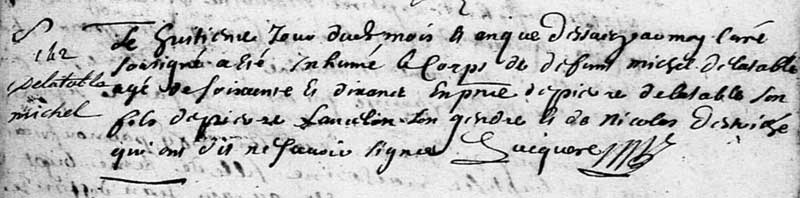 S
142
Delatable
michel
Le huitieme Jour dudt mois et an que dessus par moy Curé
soussigné a Eté inhumé le Corps de defunt michel delatable
agé de soixante et dix ans En pnce de pierre delatable son
fils de pierre Lancelin son gendre et de nicolas
qui ont dit ne sçavoir signer